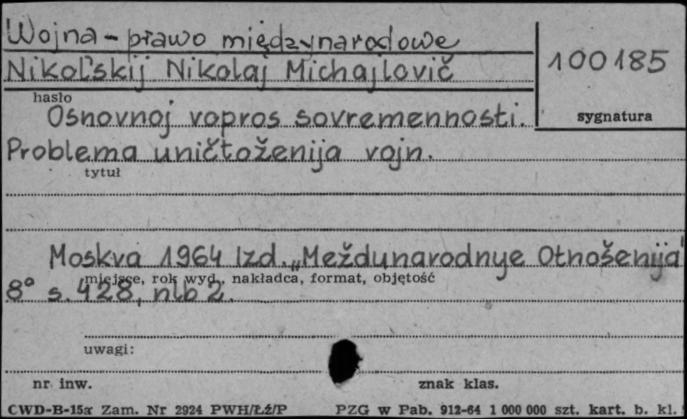 Wojna - prawo międzynarodowe
Nikol'skij Nikolaj Michajlovič
100185
hasło
sygnatura
Osnovnoj vopros sovremennosti.
Problema uničtoženija vojn.
tytuł
Moskva 1964 Izd. „Meždunarodnye Otnošenija"
miejsce, rok wyd., nakładca, format, objętość
8° s. 428, nlb 2.
uwagi:
nr inw.
znak klas.
CWD-B-15a Zam. Nr 2924 PWH/Łź/P PZG w Pab. 912-64 1 000 000 szt. kart. b. kl.